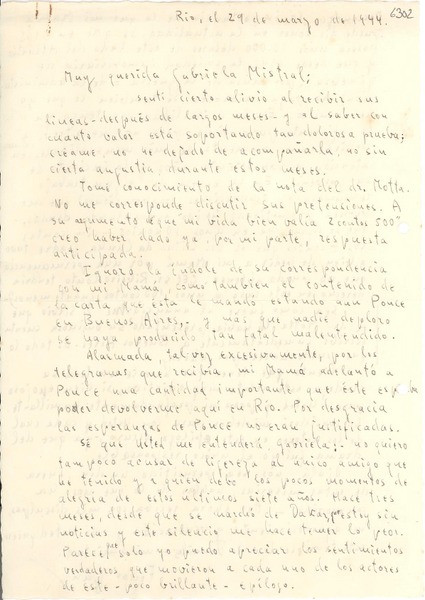 6302
Rio, el 29 de marzo de 1944.
Muy querida Gabriela Mistral;
sentí cierto alivio al recibir sus
líneas - después de largos meses - y al saber con
cuánto valor está soportando tan dolorosa prueba;
créame no he dejado de acompañarla, no sin
cierta angustia, durante estos meses.
Tomé conocimiento de la nota del dr. Motta.
No me corresponde discutir sus pretenciones. A
su argumento "que mi vida bien valía 2 contos 500"
creo haber dado ya, por mi parte, respuesta
anticipada.
Ignoro la índole de su correspondencia
con mi Mamá, como también el contenido de
la carta que ésta le mandó estando aun Ponce
en Buenos Aires, y más que nadie deploro
se haya producido tan fatal malentendido.
Alarmada, tal vez excesivamente, por los
telegramas que recibía, mi Mamá adelantó a
Ponce una cantidad importante que éste
poder devolverme aquí en Río. Por desgracia
las esperanzas de Ponce no eran justificadas.
Sé que Usted me entenderá, Gabriela; - no quiero
tampoco acusar de ligereza al único amigo que
he tenido y a quién debo los pocos momentos de
alegría de estos últimos siete años. Hace tres
meses, desde que se marchó de Dakar, estoy sin
noticias y este silencio me hace temer lo peor.
Parece que solo yo puedo apreciar los sentimientos
verdaderos que movieron a cada uno de los actores
de este - poco brillante - epílogo.